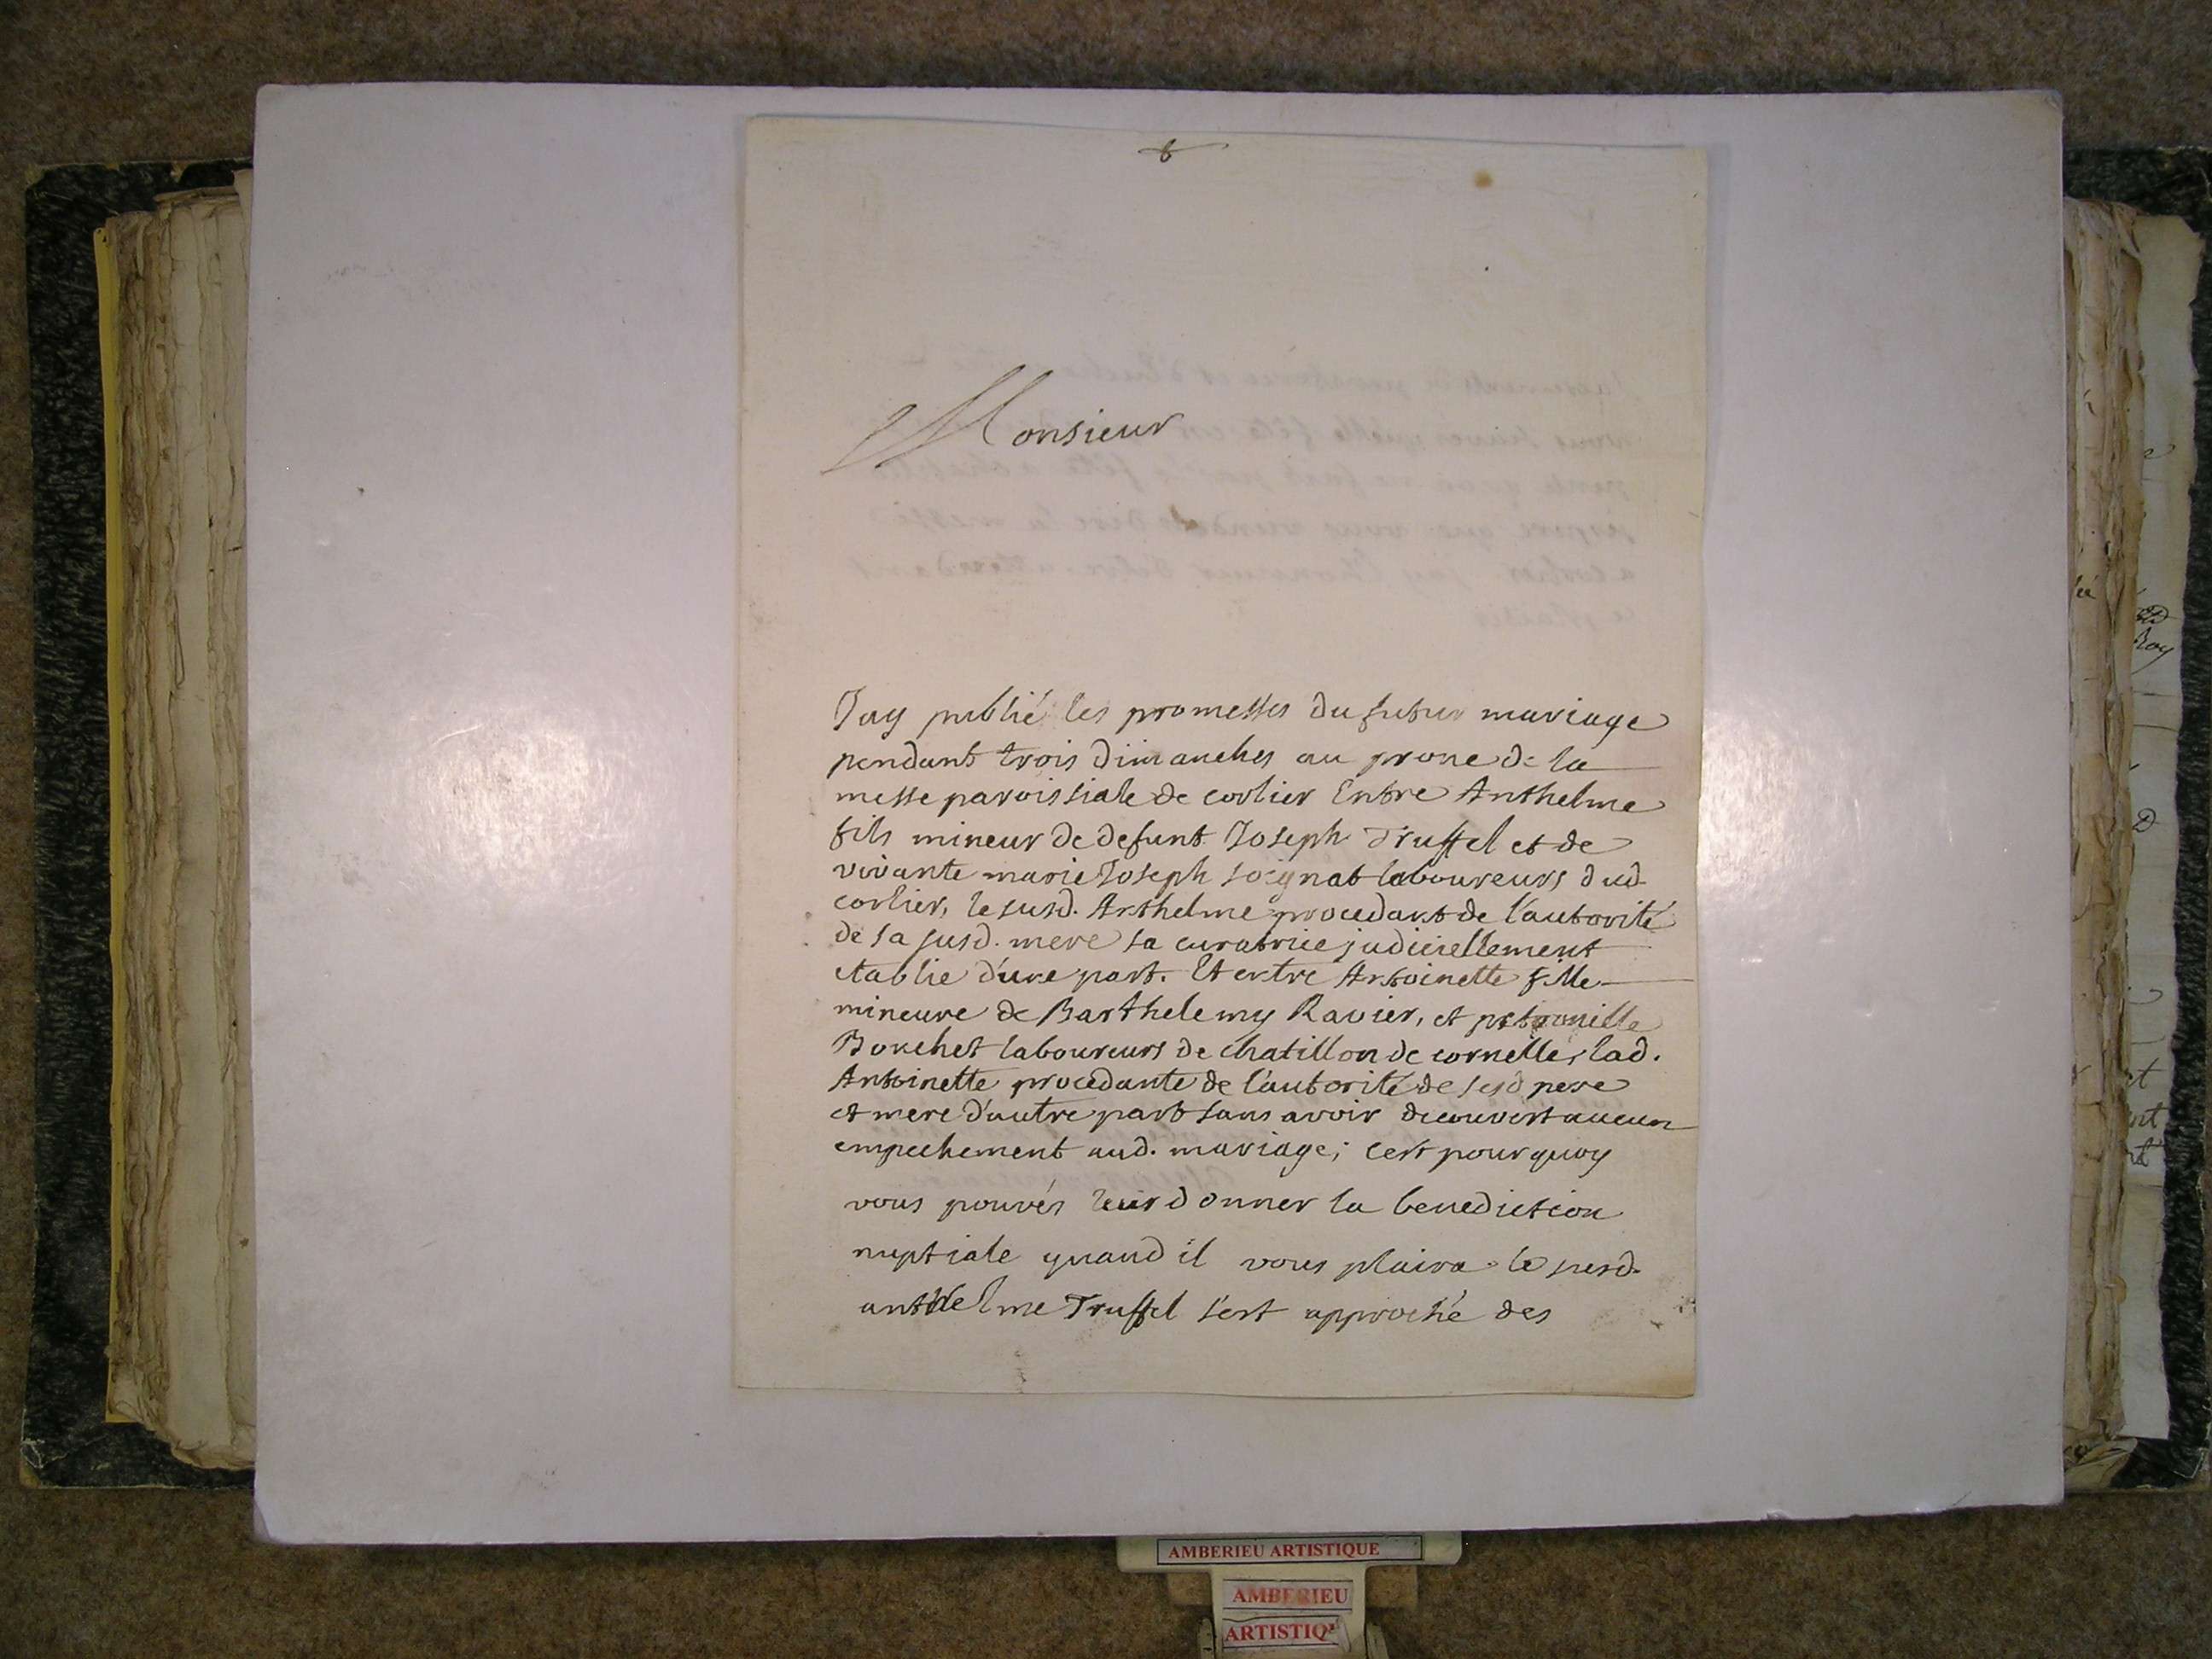 Monsieur
Jay publié les promesses du futur mariage
pendant trois dimanches au prone de la
messe paroissiale de corlier Entre Anthelme
fils mineur de defunt Joseph Truffel et de
vivante marie Joseph soignat laboureurs dud
corlier, le susd. Anthelme procedant de l'autorité
de sa susd. mere sa curatrice judiciellement
etablie d'une part. Et entre Antoinette fille
mineure de Barthelemy Ravier, et petronille
Bouchet laboureurs de chatillon de cornelle, lad.
Antoinette procedante de l'autorité de sesd pere
et mere d'autre part sans avoir decouvert aucun
empechement aud. mariage; cest pourquoy
vous pouvés leur donner la benediction
nuptiale quand il vous plaira. le susd.
anthelme Truffel s'est approché des
AMBERIEU ARTISTIQUE
AMBERIEU
ARTISTIQ